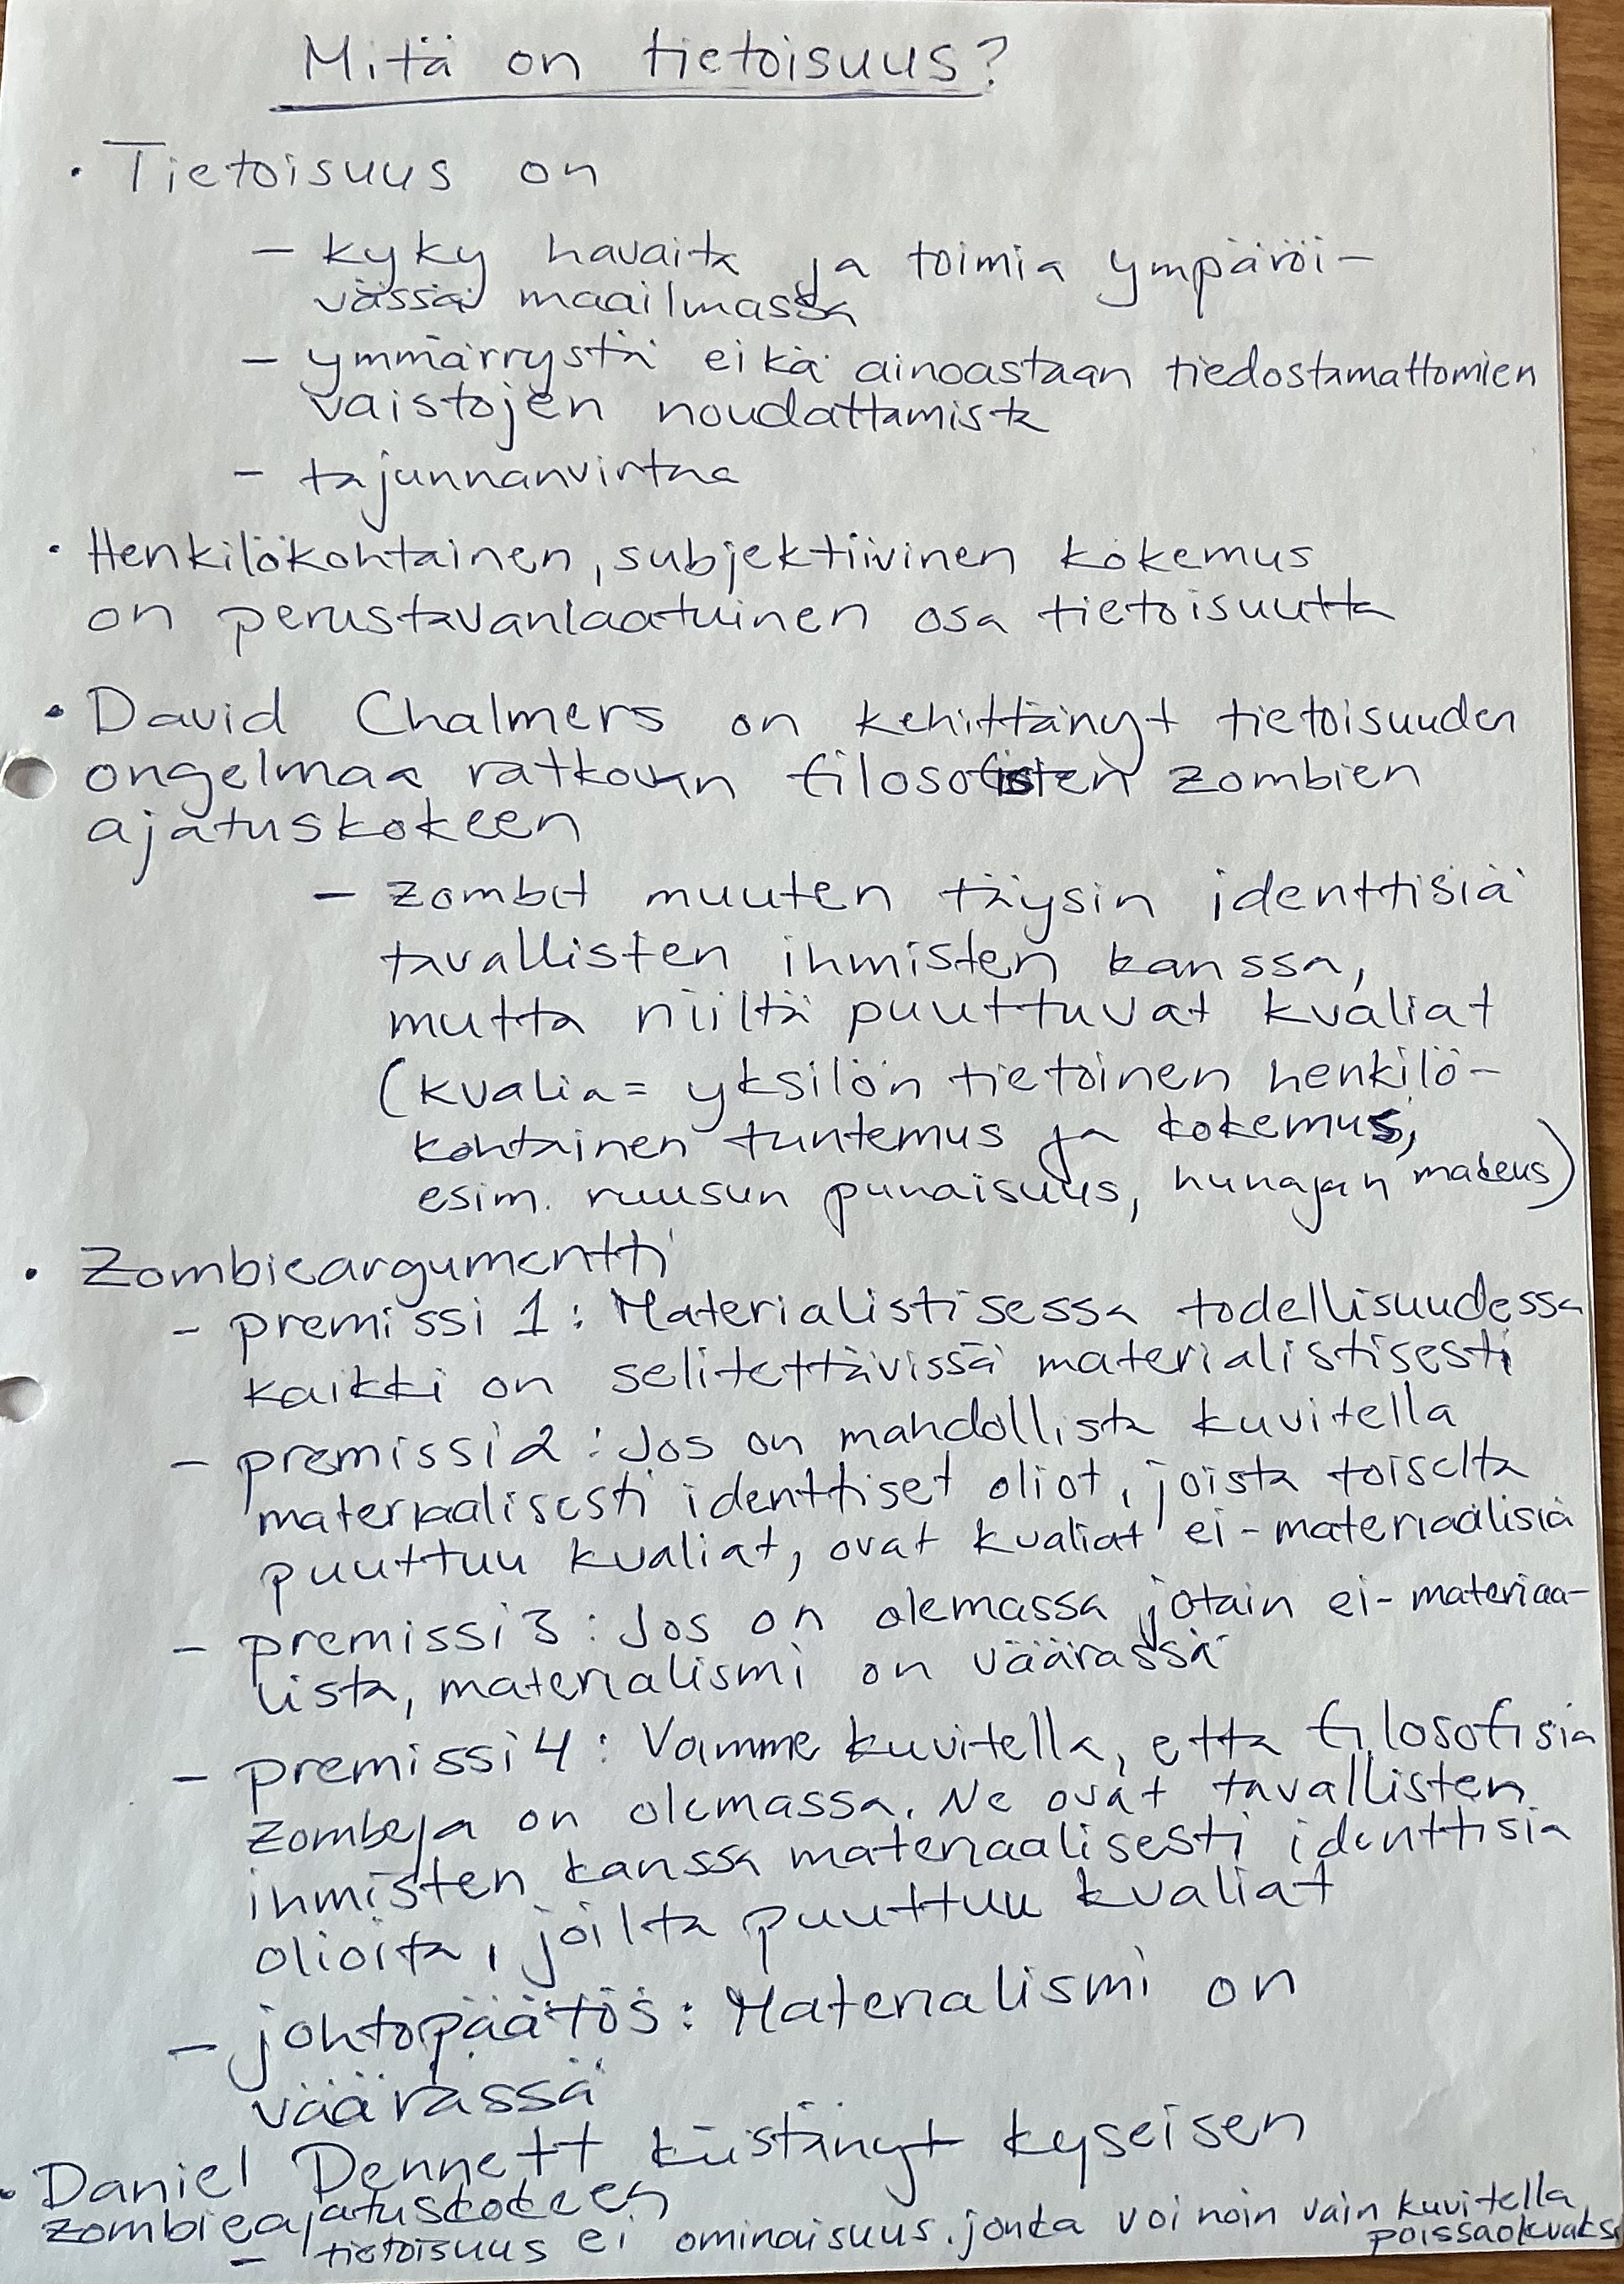 Mitä on tietoisuus?
• Tietoisuus on
– kyky havaita ja toimia ympäröi-
vässä maailmassa
– ymmärrystä eikä ainoastaan tiedostamattomien
vaistojen noudattamista
– tajunnanvirtaa
• Henkilökohtainen, subjektiivinen kokemus
on perustavanlaatuinen osa tietoisuutta
• David Chalmers on kehittänyt tietoisuuden
ongelmaa ratkovan filosofisten zombien
ajatuskokeen
– zombit muuten täysin identtisiä
tavallisten ihmisten kanssa,
mutta niiltä puuttuvat kvaliat
(kvalia = yksilön tietoinen henkilö-
kohtainen tuntemus ja kokemus,
esim. ruusun punaisuus, hunajan makeus)
• Zombieargumentti
– premissi 1: Materialistisessa todellisuudessa
kaikki on selitettävissä materialistisesti
– premissi 2: Jos on mahdollista kuvitella
materiaalisesti identtiset oliot, joista toiselta
puuttuu kvaliat, ovat kvaliat ei-materiaalisia
– premissi 3: Jos on olemassa jotain ei-materiaa-
lista, materialismi on väärässä
– premissi 4: Voimme kuvitella, että filosofisia
zombeja on olemassa. Ne ovat tavallisten
ihmisten kanssa materiaalisesti identtisiä
olioita, joilta puuttuu kvaliat
– johtopäätös: Materialismi on
väärässä
• Daniel Dennett kiistänyt kyseisen
zombieajatuskokeen
– tietoisuus ei ominaisuus, jonka voi noin vain kuvitella
poissaolevaksi